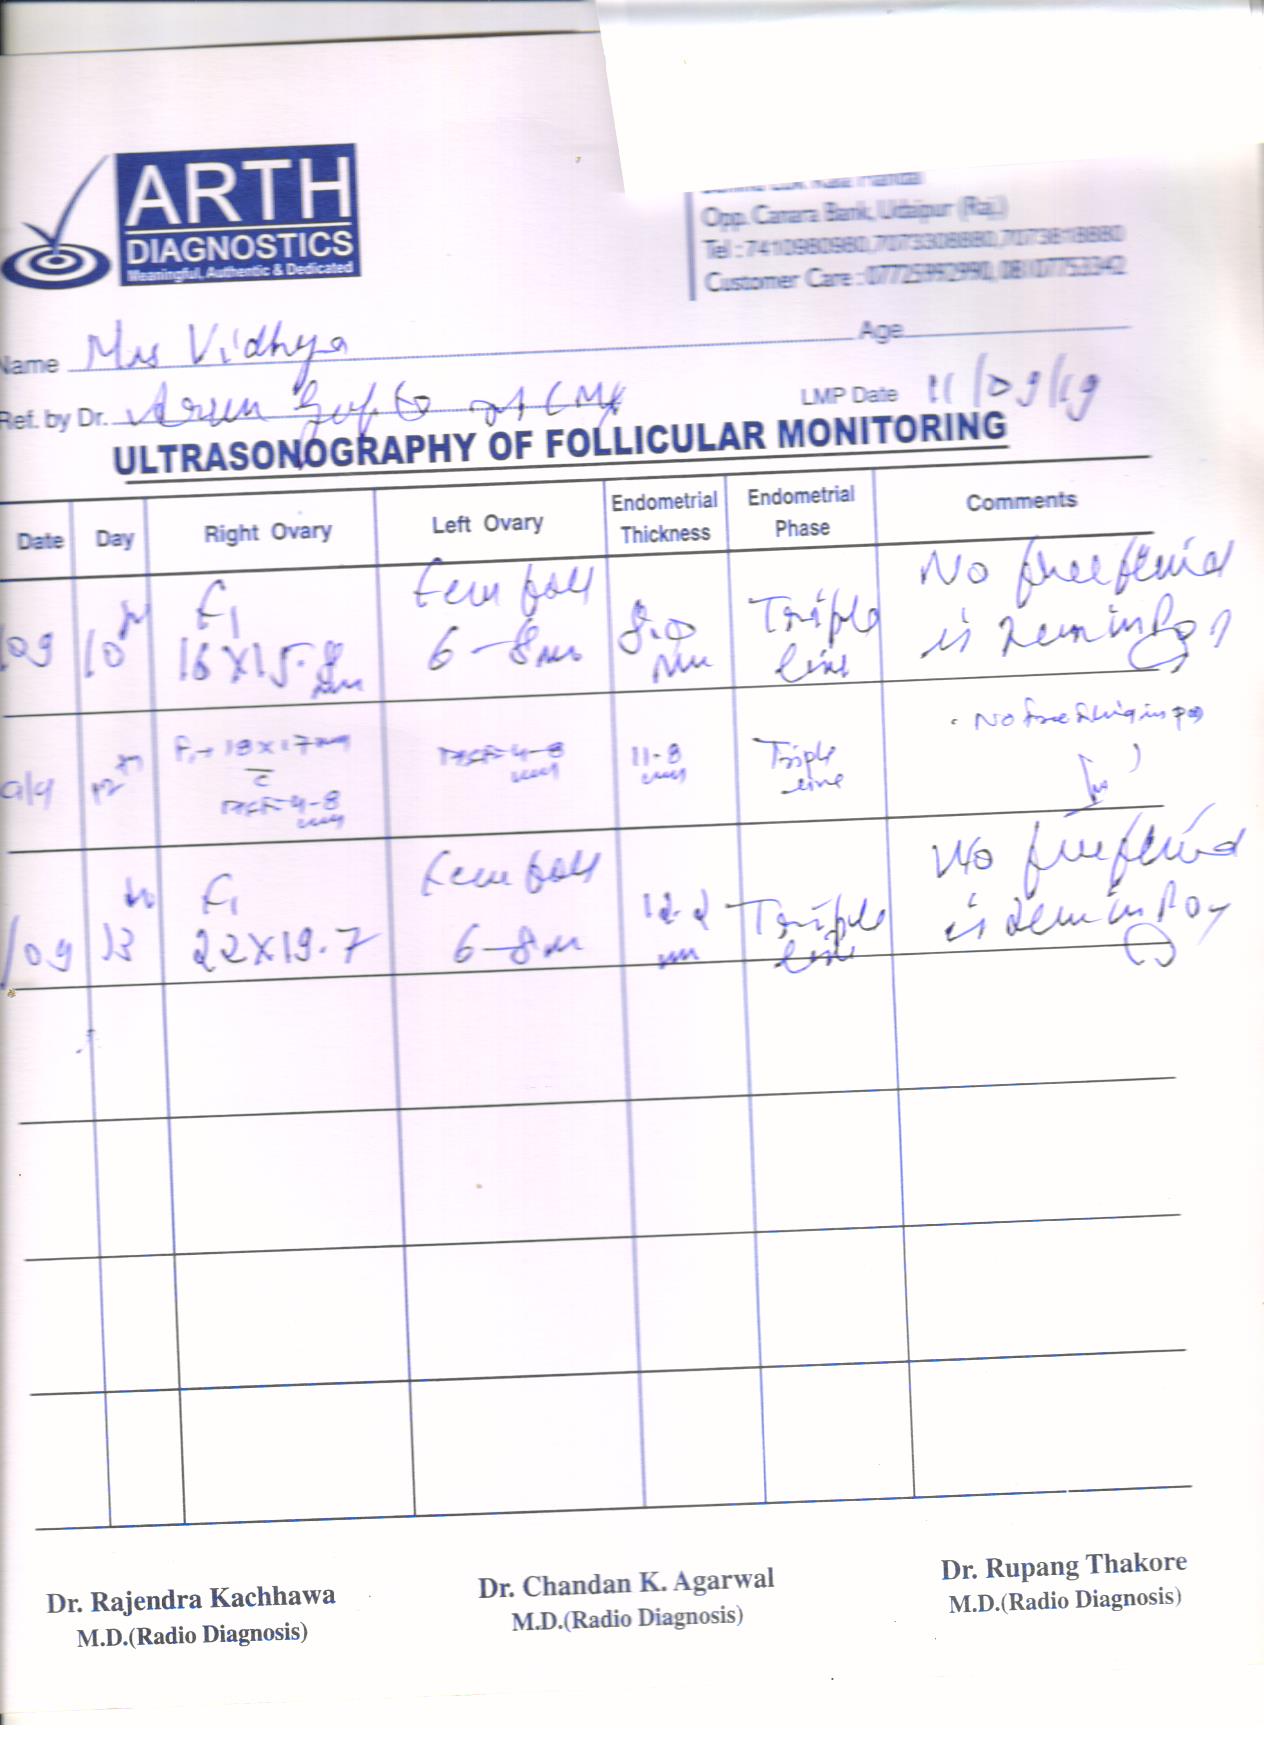 ARTH
DIAGNOSTICS
Meaningful, Authentic & Dedicated
Opp. Canara Bank, Udaipur (Raj.)
Tel : 7410980980, 7073308880, 7073818880
Customer Care : 07725992990,
Name Mrs Vidhya Age
Ref. by Dr. LMP Date 11/09/19
ULTRASONOGRAPHY OF FOLLICULAR MONITORING
Date Day Right Ovary Left Ovary Endometrial Thickness Endometrial Phase Comments
10th F1 16 X 15.8 mm Few foll 6-8mm 8.0 mm Triple line No free fluid is seen in
12th F1→ 18 x 17 mm 4-8 mm 4-8 mm 11.8 mm Triple line No free fluid in POD
13th F1 22 X 19.7 Few foll 6-8mm 12.2 mm Triple line No free fluid is seen in POD
Dr. Rajendra Kachhawa
M.D.(Radio Diagnosis)
Dr. Chandan K. Agarwal
M.D.(Radio Diagnosis)
Dr. Rupang Thakore
M.D.(Radio Diagnosis)